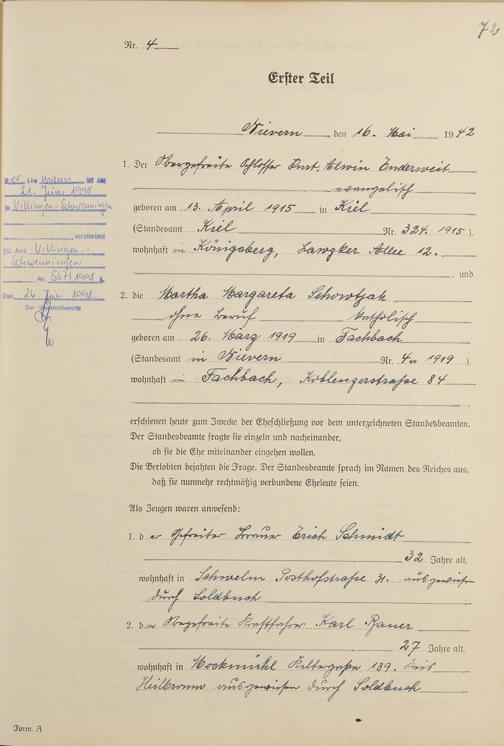 72
Nr. 4
Erster Teil
Nievern, den 16. Mai 1942
1. Der Obergefreite Schlosser Kurt, Alwin Enderweit
evangelisch
geboren am 13. April 1915 in Kiel
(Standesamt Kiel Nr. 324. 1915).
wohnhaft in Königsberg, Lawsker Allee 12.
und
2. die Martha Margareta
ohne Beruf katholisch
geboren am 26. März 1919 in Fachbach
(Standesamt in Nievern Nr. 4 1919).
wohnhaft in Fachbach, Koblenzerstraße 84
erschienen heute zum Zwecke der Eheschließung vor dem unterzeichneten Standesbeamten.
Der Standesbeamte fragte sie einzeln und nacheinander,
ob sie die Ehe miteinander eingehen wollen.
Die Verlobten bejahten die Frage. Der Standesbeamte sprach im Namen des Reiches aus,
daß sie nunmehr rechtmäßig verbundene Eheleute seien.
Als Zeugen waren anwesend:
1. der Gefreiter Erich Schmidt
32 Jahre alt,
wohnhaft in Schwelm Posthofstraße 31. ausgewiesen
durch Soldbuch
2. der Obergefreite Kraftfahrer Karl
27 Jahre alt,
wohnhaft in Möckmühl 139. Kreis
Heilbronn ausgewiesen durch Soldbuch
Form. A
Der Ehemann ist am
21. Juni 1998
in Villingen-Schwenningen
verstorben
Villingen-
Schwenningen
Nr. 557/1998
Den 26. Juni 1998
Der Standesbeamte